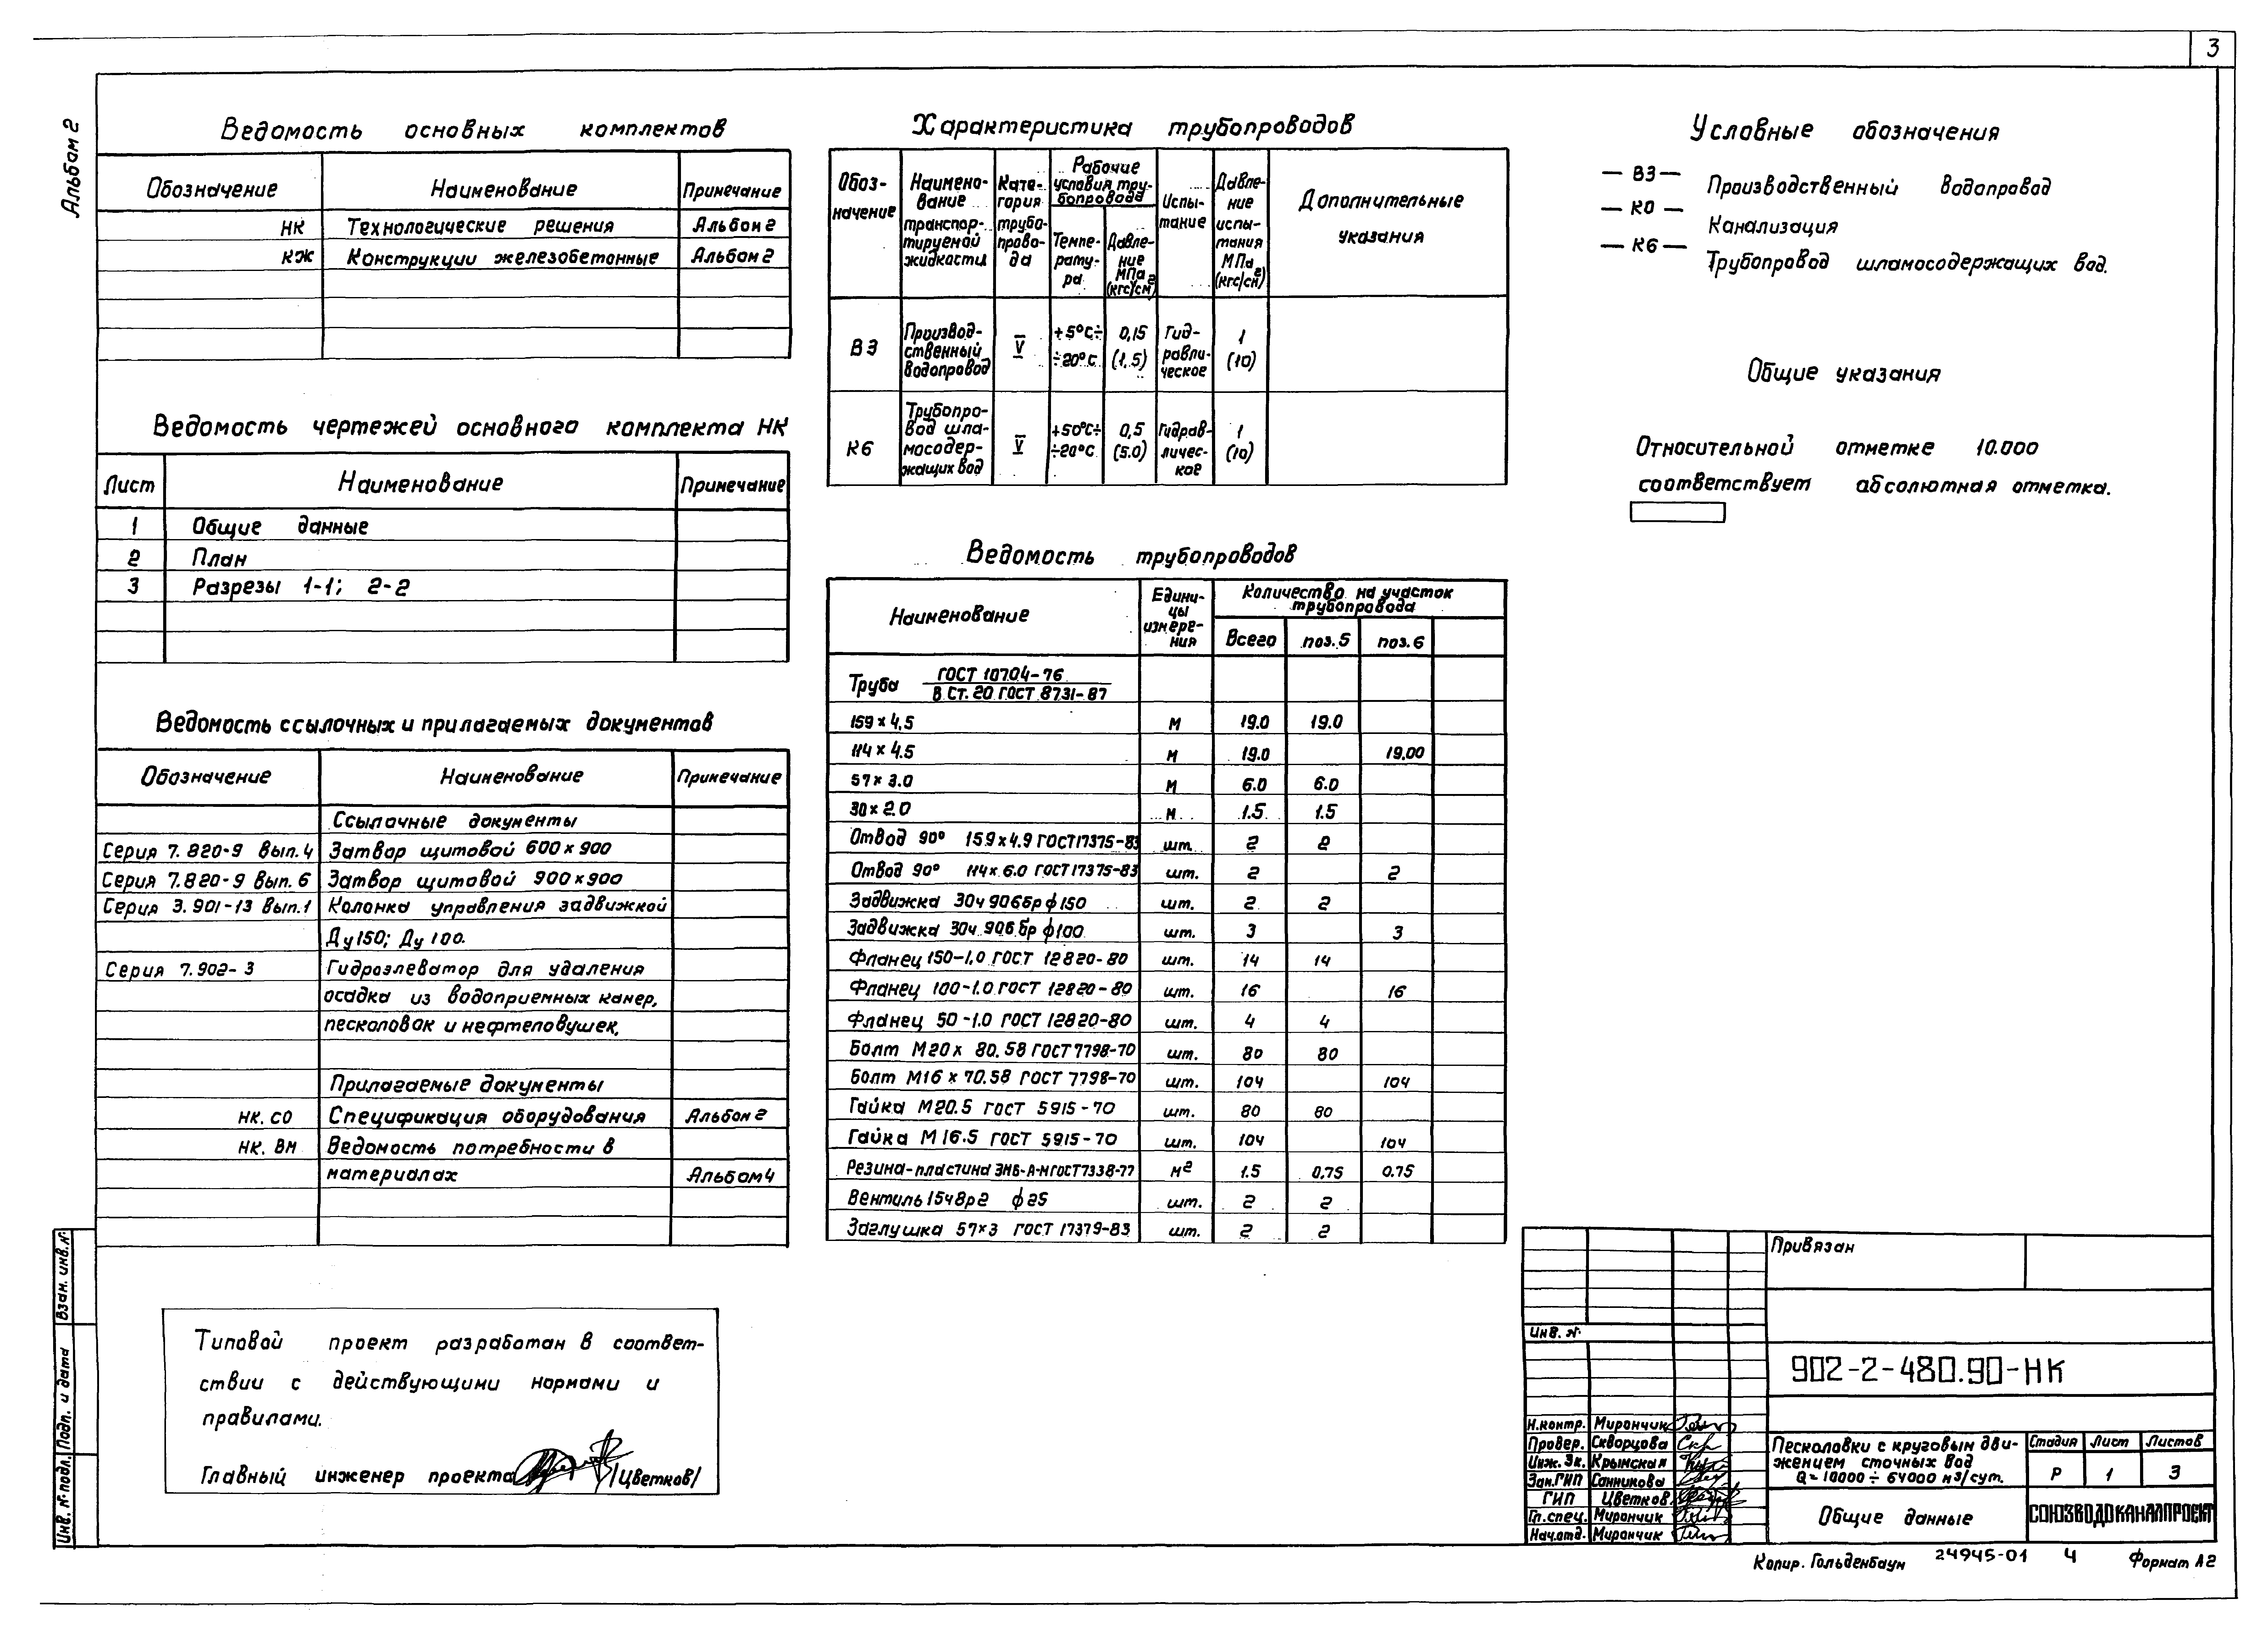 3
Альбом 2
Ведомость основных комплектов
Обозначение Наименование Примечание
НК Технологические решения Альбом 2
КЖ Конструкции железобетонные Альбом 2
Ведомость чертежей основного комплекта НК
Лист Наименование Примечание
1 Общие данные
2 План
3 Разрезы 1-1; 2-2
Ведомость ссылочных и прилагаемых документов
Обозначение Наименование Примечание
Ссылочные документы
Серия 7.820-9 Вып.4 Затвор щитовой 600×900
Серия 7.820-9 Вып.6 Затвор щитовой 900×900
Серия 3.901-13 Вып.1 Колонка управления задвижкой
Ду150; Ду 100.
Серия 7.902-3 Гидроэлеватор для удаления
осадка из водоприемных камер,
песколовок и нефтеловушек.
Прилагаемые документы
НК.СО Спецификация оборудования Альбом 2
НК.ВМ Ведомость потребности в
материалах Альбом 4
Типовой проект разработан в соответ-
ствии с действующими нормами и
правилами.
Главный инженер проекта /Цветков/
Характеристика трубопроводов
Обоз-
начение
Наимено-
вание
транспор-
тируемой
жидкости
Кате-
гория
трубо-
прово-
да
Рабочие
условия тру-
бопровода
Темпе-
рату-
ра
Давле-
ние
МПа
(кгс/см²)
Испы-
тание
Давле-
ние
испы-
тания
МПа
(кгс/см²)
Дополнительные
указания
В3
Производ-
ственный
водопровод
V
+5°С÷
÷20°С
0,15
(1,5)
Гид-
равли-
ческое
1
(10)
К6
Трубопро-
вод шла-
мосодер-
жащих вод
V
+50°С÷
÷20°С
0,5
(5.0)
Гидрав-
личес-
кое
1
(10)
Ведомость трубопроводов
Наименование
Едини-
цы
измере-
ния
Количество на участок
трубопровода
Всего поз.5 поз.6
Труба ГОСТ 10704-76
В Ст.20 ГОСТ 8731-87
159×4,5 м 19.0 19.0
114×4.5 м 19.0 19.00
57×3.0 м 6.0 6.0
30×2.0 м 1.5 1.5
Отвод 90° 159×4.9 ГОСТ17375-83 шт. 2 2
Отвод 90° 114×6.0 ГОСТ17375-83 шт. 2 2
Задвижка 30ч906бр ф150 шт. 2 2
Задвижка 30ч 906 бр ф100 шт. 3 3
Фланец 150-1,0 ГОСТ 12820-80 шт. 14 14
Фланец 100-1.0 ГОСТ 12820-80 шт. 16 16
Фланец 50-1.0 ГОСТ 12820-80 шт. 4 4
Болт М20× 80.58 ГОСТ7798-70 шт. 80 80
Болт М16×70.58 ГОСТ 7798-70 шт. 104 104
Гайка М20.5 ГОСТ 5915-70 шт. 80 80
Гайка М16.5 ГОСТ 5915-70 шт. 104 104
Резина-пластина 3МБ-А-МГОСТ7338-77 м² 1.5 0,75 0.75
Вентиль 15ч8р2 ф25 шт. 2 2
Заглушка 57×3 ГОСТ 17379-83 шт. 2 2
Условные обозначения
— В3 — Производственный водопровод
— К0 — Канализация
— К6 — Трубопровод шламосодержащих вод.
Общие указания
Относительной отметке 10.000
соответствует абсолютная отметка.
Привязан
Инв. №
902-2-480.90-НК
Н.контр. Мирончик
Провер. Скворцова
Инж.Зк. Крымская
Зам.ГИП Санникова
ГИП Цветков
Гл.спец. Мирончик
Нач.отд. Мирончик
Песколовки с круговым дви-
жением сточных вод
Q = 10000 ÷ 64000 м3/сут.
Стадия Лист Листов
Р 1 3
Общие данные
СОЮЗВОДОКАНАЛПРОЕКТ
Копир. Гольденбаун 24945-01 4 Формат А2
Взам. инв.№
Подп. и дата
Инв.№подл.